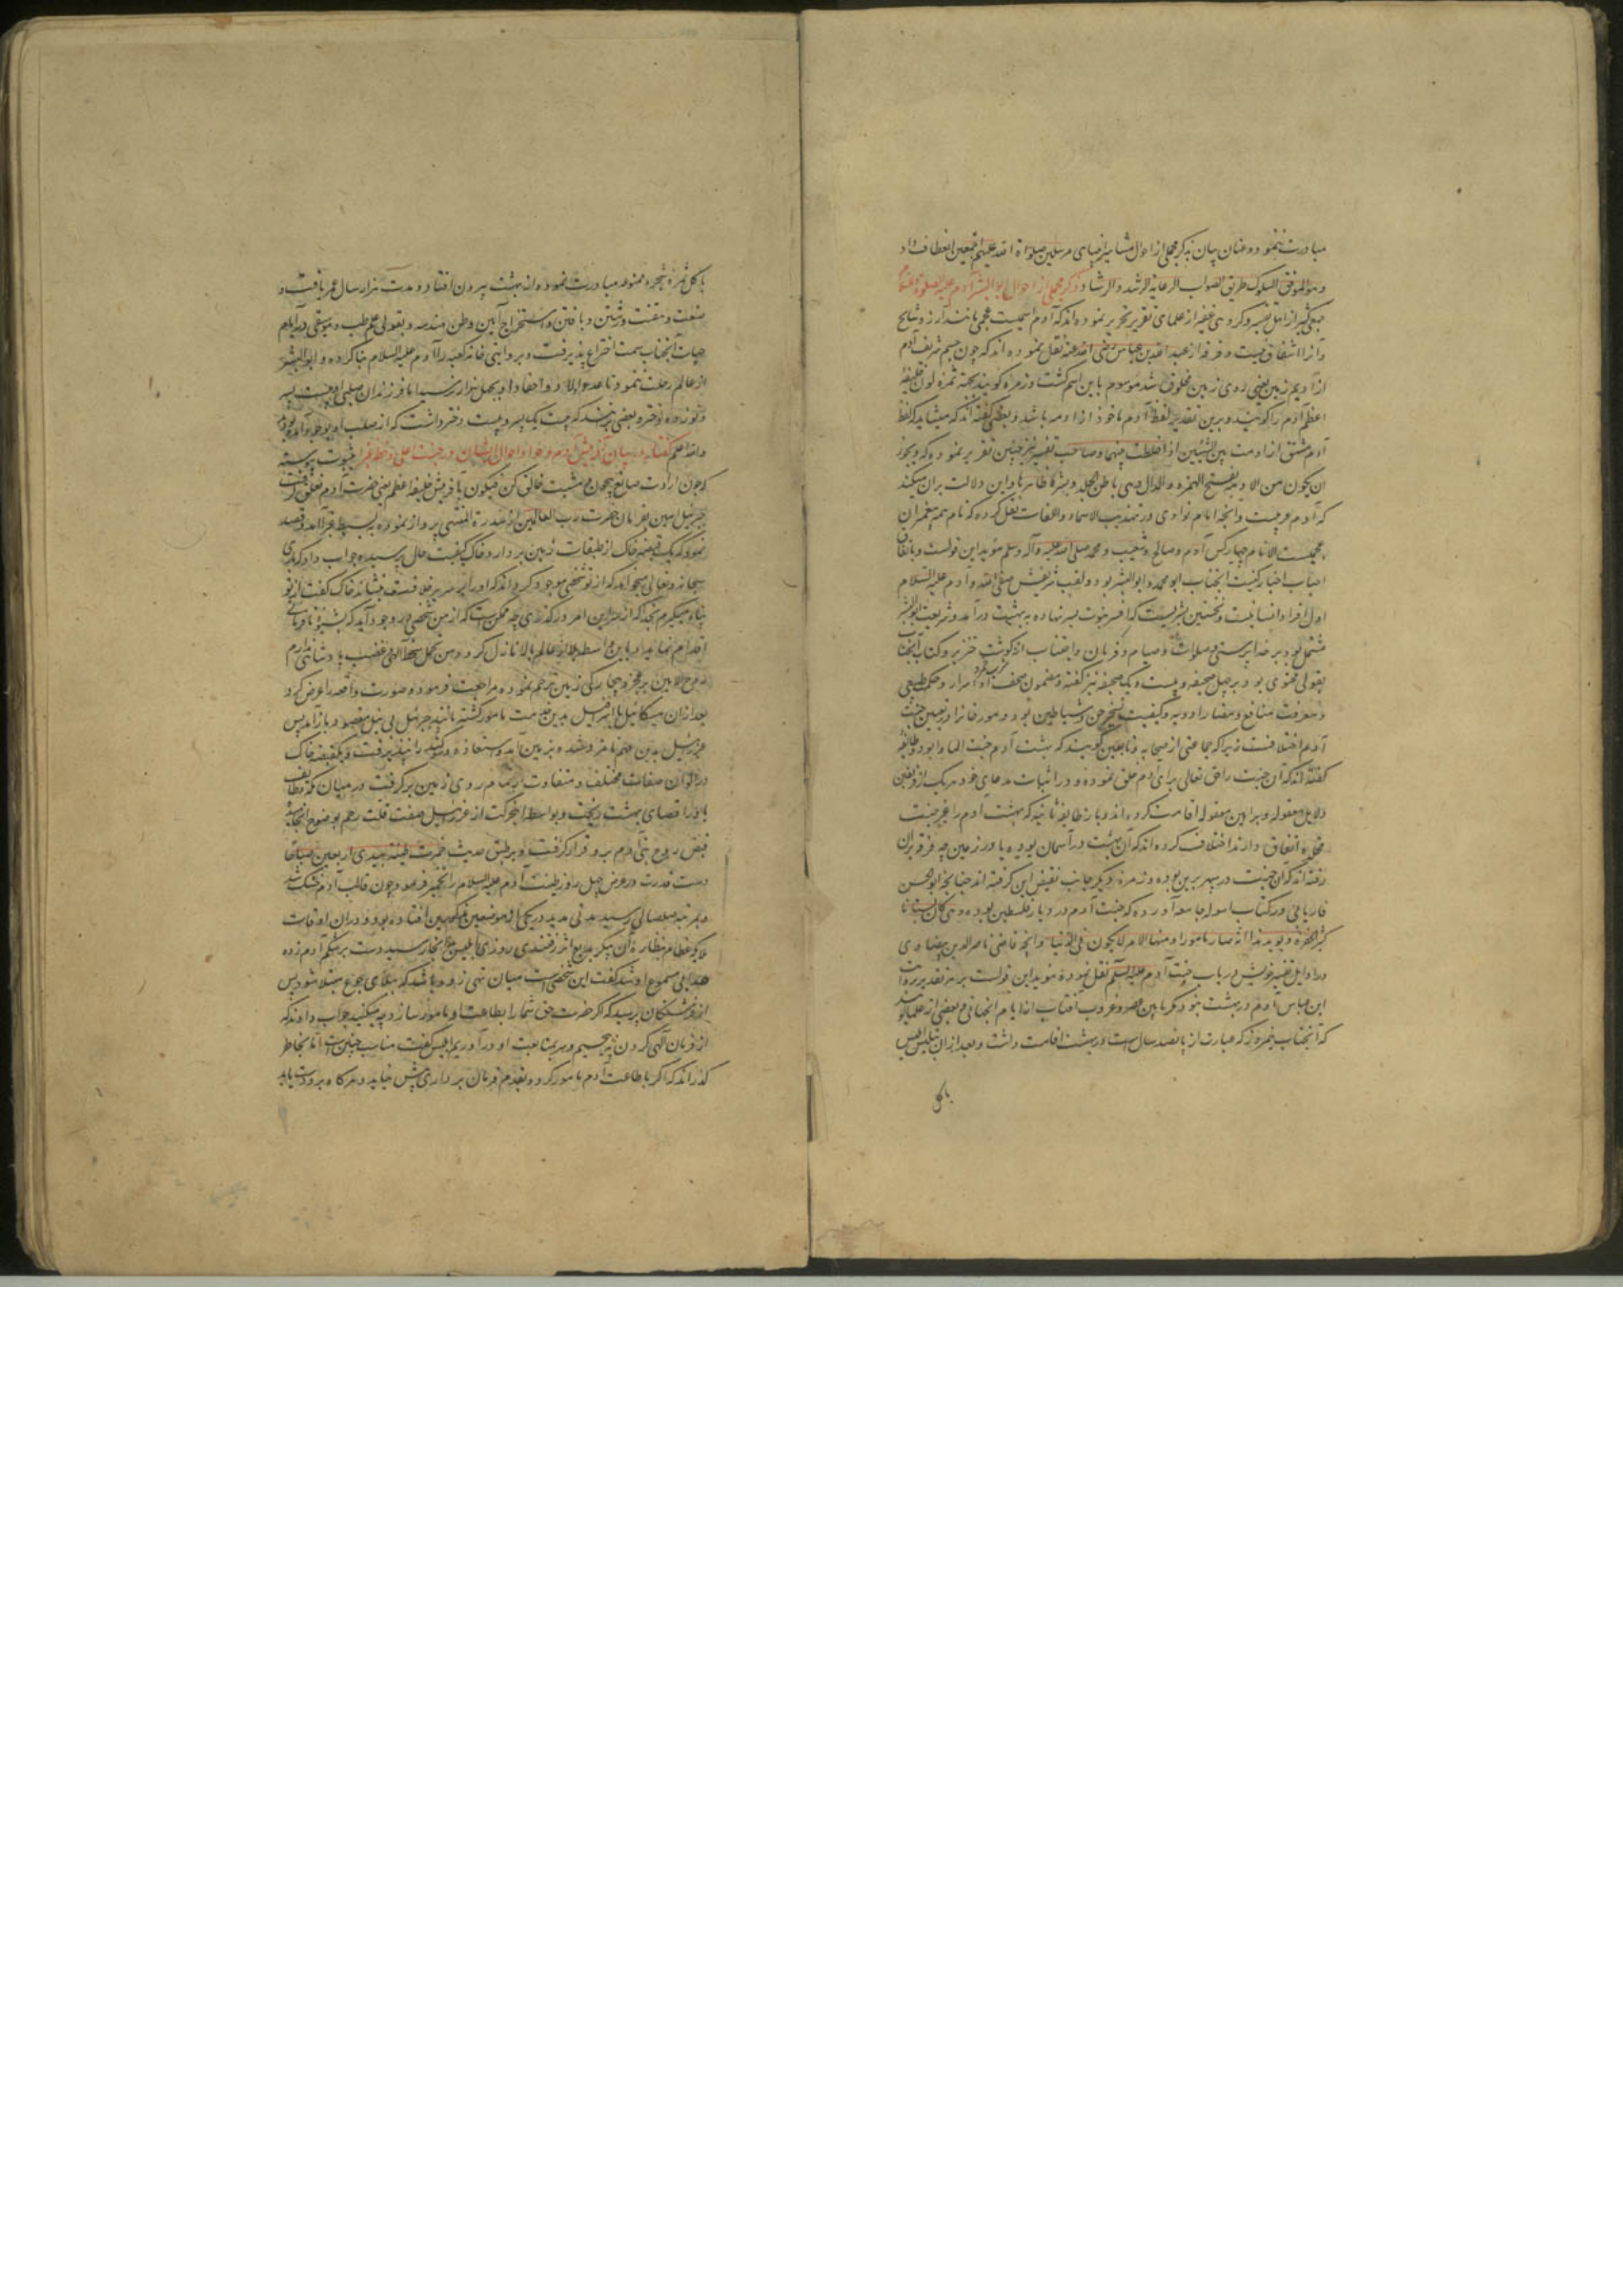 مبادرت ننمود و عنان بیان بذکر مجملی از احوال مشاهیر انبیای مرسلین صلواة الله علیهم اجمعین انعطاف داد
و هو الموفق السلوک طریق الصواب الرعایة الرشد و الرشاد ذکر مجملی از احوال ابو البشر آدم علیه الصلوة
جمعی کثیر از اهل تفسیر و کروهی غفیر از علمای تقریر تحریر نموده‌اند که آدم اسمیست عجمی مانند آزر و شالخ
و آنرا اشتقاق نیست و فرقه از عبد الله بن عباس رضی الله عنه نقل نموده اند که چون جسم شریف آدم
از ادیم زمین یعنی روی زمین مخلوق شد موسوم باین اسم کشت و زمره کویند
اعظم آدم را کویند و برین تقدیر لفظ آدم ماخوذ از ادمه باشد و بعضی کفته اند که میشاید که لفظ
آدم مشتق از ادمت بین الشیئین اذا خلطت بینهما و صاحب تفسیر نیز چنین تقریر نموده که و یجوز
ان یکون من الادمة بفتح الهمزه و الدال وهی باطن الجلد و بشره ظاهرها و این دلالت بران میکند
که آدم عربیست و آنچه امام نواوی در تهذیب الاسماء و اللغات نقل کرده که نام همه پیغمبران
عجمیست الا نام چهار کس آدم و صالح و شعیب و محمد صلی الله علیه وآله وسلم موید این قولست و باتفاق
اصحاب اخبار کنیت آنجناب ابو محمد و ابو البشر بود و لقب شریفش صفی الله و آدم علیه السلام
اول افراد انسانیست و نخستین بشریست که افسر نبوت بسر نهاده به بهشت درآمد و شریعت ابو البشر
مشتمل بود بر خدا پرستی و صلوات و صیام و قربان و اجتناب از کوشت خنزیر و کتاب آنجناب
بقولی محتوی بود بر چهل صحیفه و بیست و یک صحیفه نیز کفته و مضمون صحف آدم اسرار و حکم طبیعی
و معرفت منافع و مضار ادویه و کیفیت تسخیر جن و شیاطین بود و مورخانرا در تعیین جنت
آدم اختلافست زیرا که جماعتی از صحابه و تابعین کویند که بهشت آدم جنت الماوا بود و طایفه
کفته اند که آن جنت را حق تعالی برای آدم خلق نموده و در اثبات مدعای خود هر یک از فریقین
دلایل معقوله و براهین منقوله اقامت کرده اند و باز طایفه ثانیه که بهشت آدم را غیر جنت
اتفاق دارند اختلاف کرده اند که آن بهشت در آسمان بوده یا در زمین چه فرقه بران
رفته اند که آن جنت در سپهر برین بوده و زمره دیکر جانب نقیض این کرفته اند چنانچه ابو الحسن
فاریابی در کتاب آورده که جنت آدم در دیار فلسطین بوده و هی کان بستانا
کثیر الخضرة و یوید هذا انه صار مامورا و منهیا الامر لا یکون فی الدنیا و آنچه قاضی ناصر الدین بیضاوی
در اوایل تفسیر خویش در باب جنت آدم علیه السلم نقل نموده موید این قولست بر هر تقدیر بروایت
ابن عباس آدم در بهشت نبود مکر ما بین عصر و غروب آفتاب از ایام آنجهانی و بعضی از علما
که آنجناب نیمروز که عبارت از پانصد سال است در بهشت اقامت داشت و بعد از آن بتلبیس ابلیس
باکل
باکل ثمره شجره ممنوعه مبادرت نموده از بهشت بیرون افتاد و مدت هزار سال عمر یافت و
صنعت و رشتن و بافتن و استخراج آهن و هندسه و بقولی علم طب و موسیقی در ایام
حیات آنجناب سمت اختراع پذیرفت و بروایتی خانه کعبه را آدم علیه السلام بنا کرده و ابو البشر
از عالم رحلت ننمود تا عدد اولاد و احفاد او بچهل هزار رسید اما فرزندان صلبی او بیست پسر
و نوزده دختر و بعضی برانند که بیست یک پسر و بیست دختر داشت که از صلب او بوجود آمده بود
والله اعلم کفتار در بیان آفرینش آدم و حوا و احوال ایشان در جنت علی و خطه غبرا بثبوت پیوسته
که چون ارادت صانع بیچون و مشیت خالق کن فیکون بآفرینش خلیفه اعظم یعنی حضرت آدم تعلق کرفت
جبرئیل امین بفرمان حضرت رب العالمین از سدرة المنتهی پرواز نموده بر بسیط غبرا آمد و قصد
نمود که یک قبضه خاک از طبقات زمین بردارد و خاک کیفیت حال پرسیده جواب داد که ایزد
سبحانه و تعالی میخواهد که از تو شخصی موجود کرداند که او را بر سریر خلافت نشاند خاک کفت از تو
پناه میکیرم بخدا که از سر این امر درکذری چه ممکن است که از من شخصی در وجود آید که بشیوه نافرمانی
اقدام نماید و باین واسطه بلا از عالم بالا نازل کردد و من تحمل سخط الهی و غضب پادشاهی ندارم
روح الامین بر عجز و بیچارکی زمین ترحم نموده مراجعت فرموده صورت واقعه را عرض کرد
بعد از ان میکائیل یا اسرافیل بدین خدمت مامور کشته مانند جبرئیل بی نیل مقصود باز آمد پس
عزرائیل بدین مهم نامزد شده بزمین آمد و استعاذه و سوکند را نپذیرفت و یکقبضه خاک
در الوان صفات مختلف و متفاوت از تمام روی زمین برکرفت و در میان مکه و طایف
یا در اقصای بهشت ریخت و بواسطه این حرکت از عزرائیل صفت قلت رحم بوضوح انجامید
قبض روح بنی آدم برو قرار کرفت و بر طبق حدیث خمرت طینة بیدی اربعین صباحا
دست قدرت در عرض چهل روز طینت آدم علیه السلام را تخمیر فرمود و چون قالب آدم خشک شد
و بمرتبه صلصالی رسید مدتی مدید در یکی از موضعین مذکورین افتاده بود و دران اوقات
ملایکه عظام بنظاره آن پیکر بدیع رفتندی روزی ابلیس آنجا رسید دست بر شکم آدم زده
صدایی مسموع او شد کفت این شخصی است میان تهی زود باشد که ببلای جوع مبتلا شود پس
از فرشتکان پرسید که اکر حضرت حق شما را بطاعت او مامور سازد چه میکنید جواب دادند که
از فرمان الهی کردن نه پیچیم و سر بمتابعت او درآوریم ابلیس کفت مناسب چنین است اما بخاطر
کذراند که اکر باطاعت آدم مامور کردد بقدم فرمان برداری پیش نیاید و هرکاه برو دست یابد